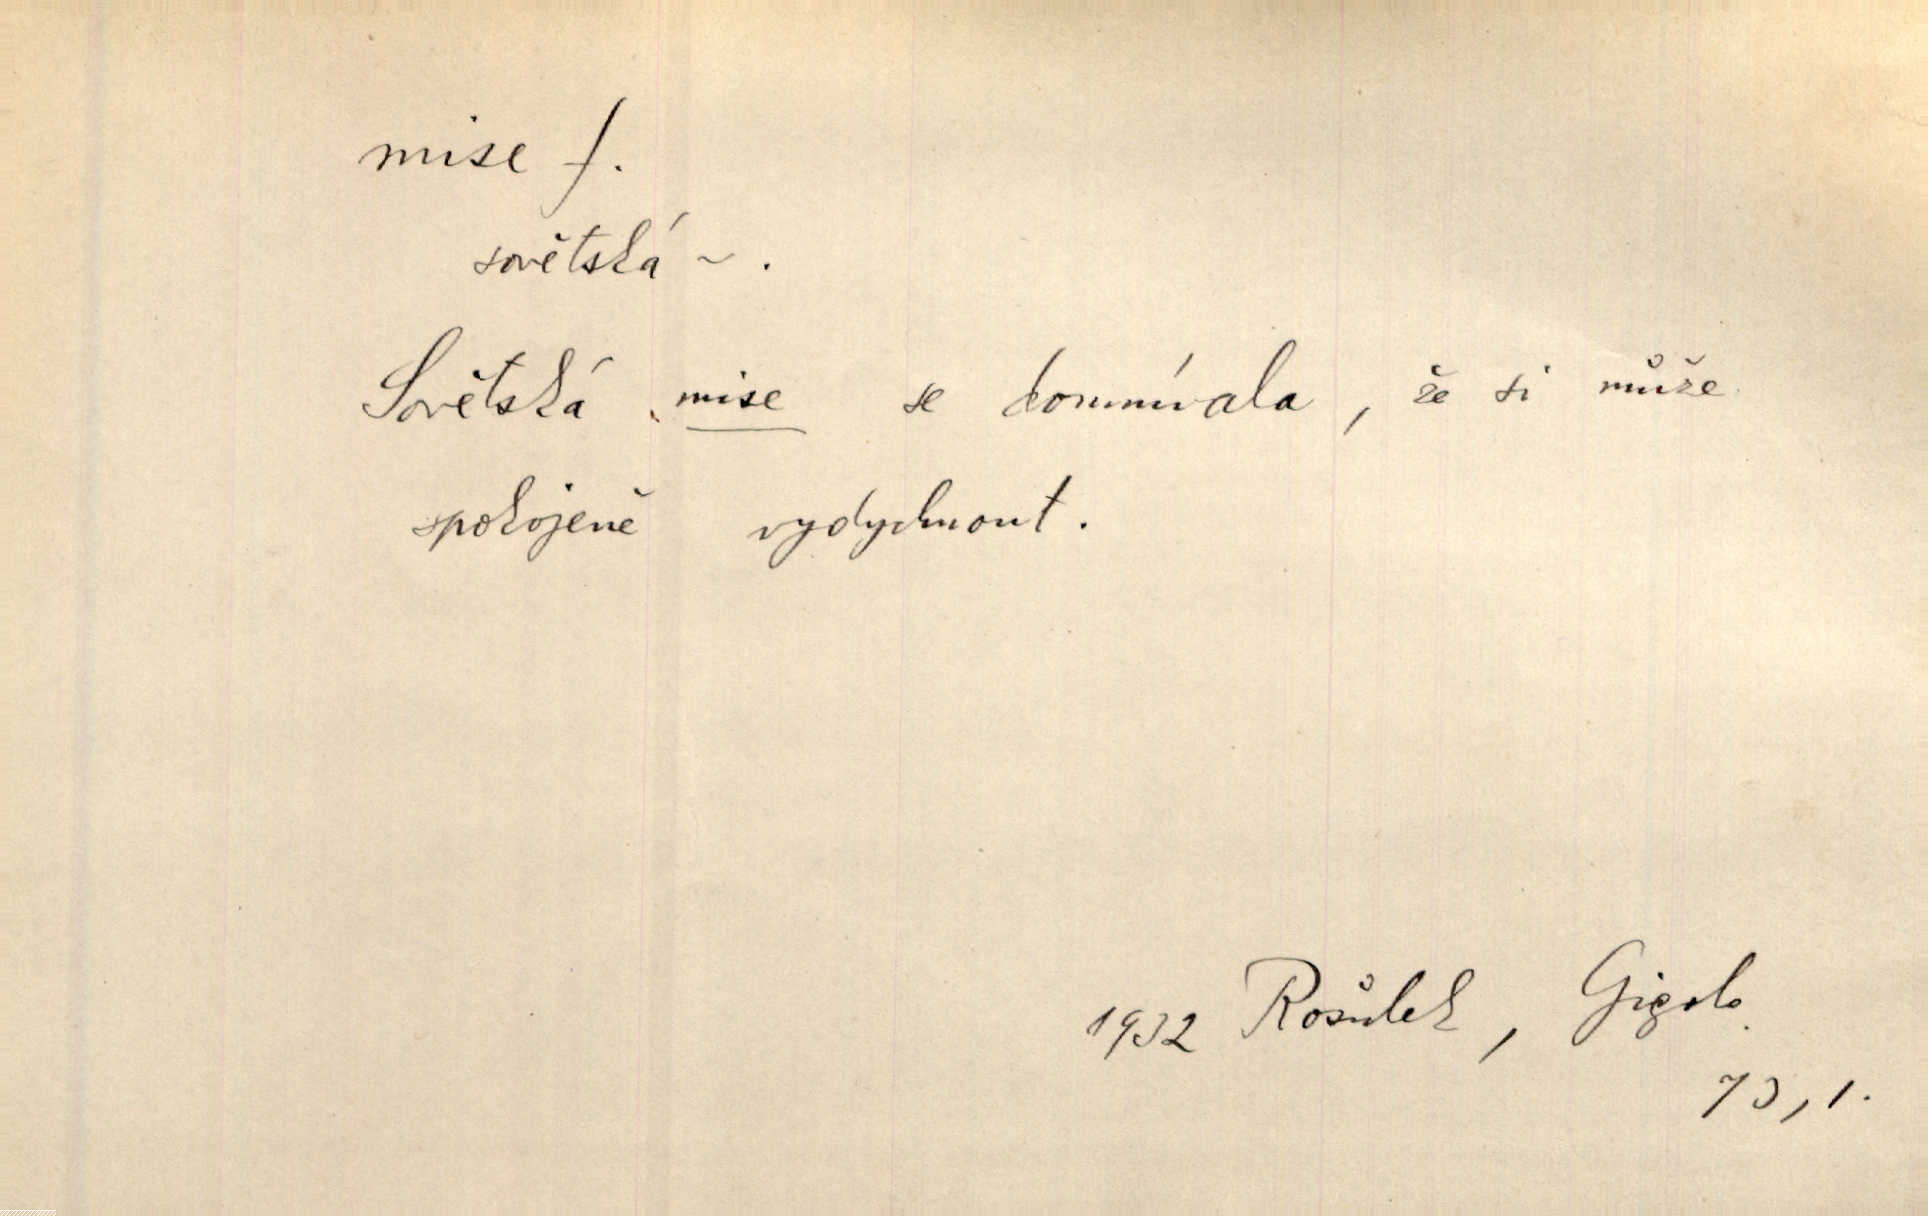 mise f.
sovětská ~.
Sovětská mise se domnívala, že si může
spokojeně vydychnout.
1932 Rošůlek, Gigolo
73, 1.